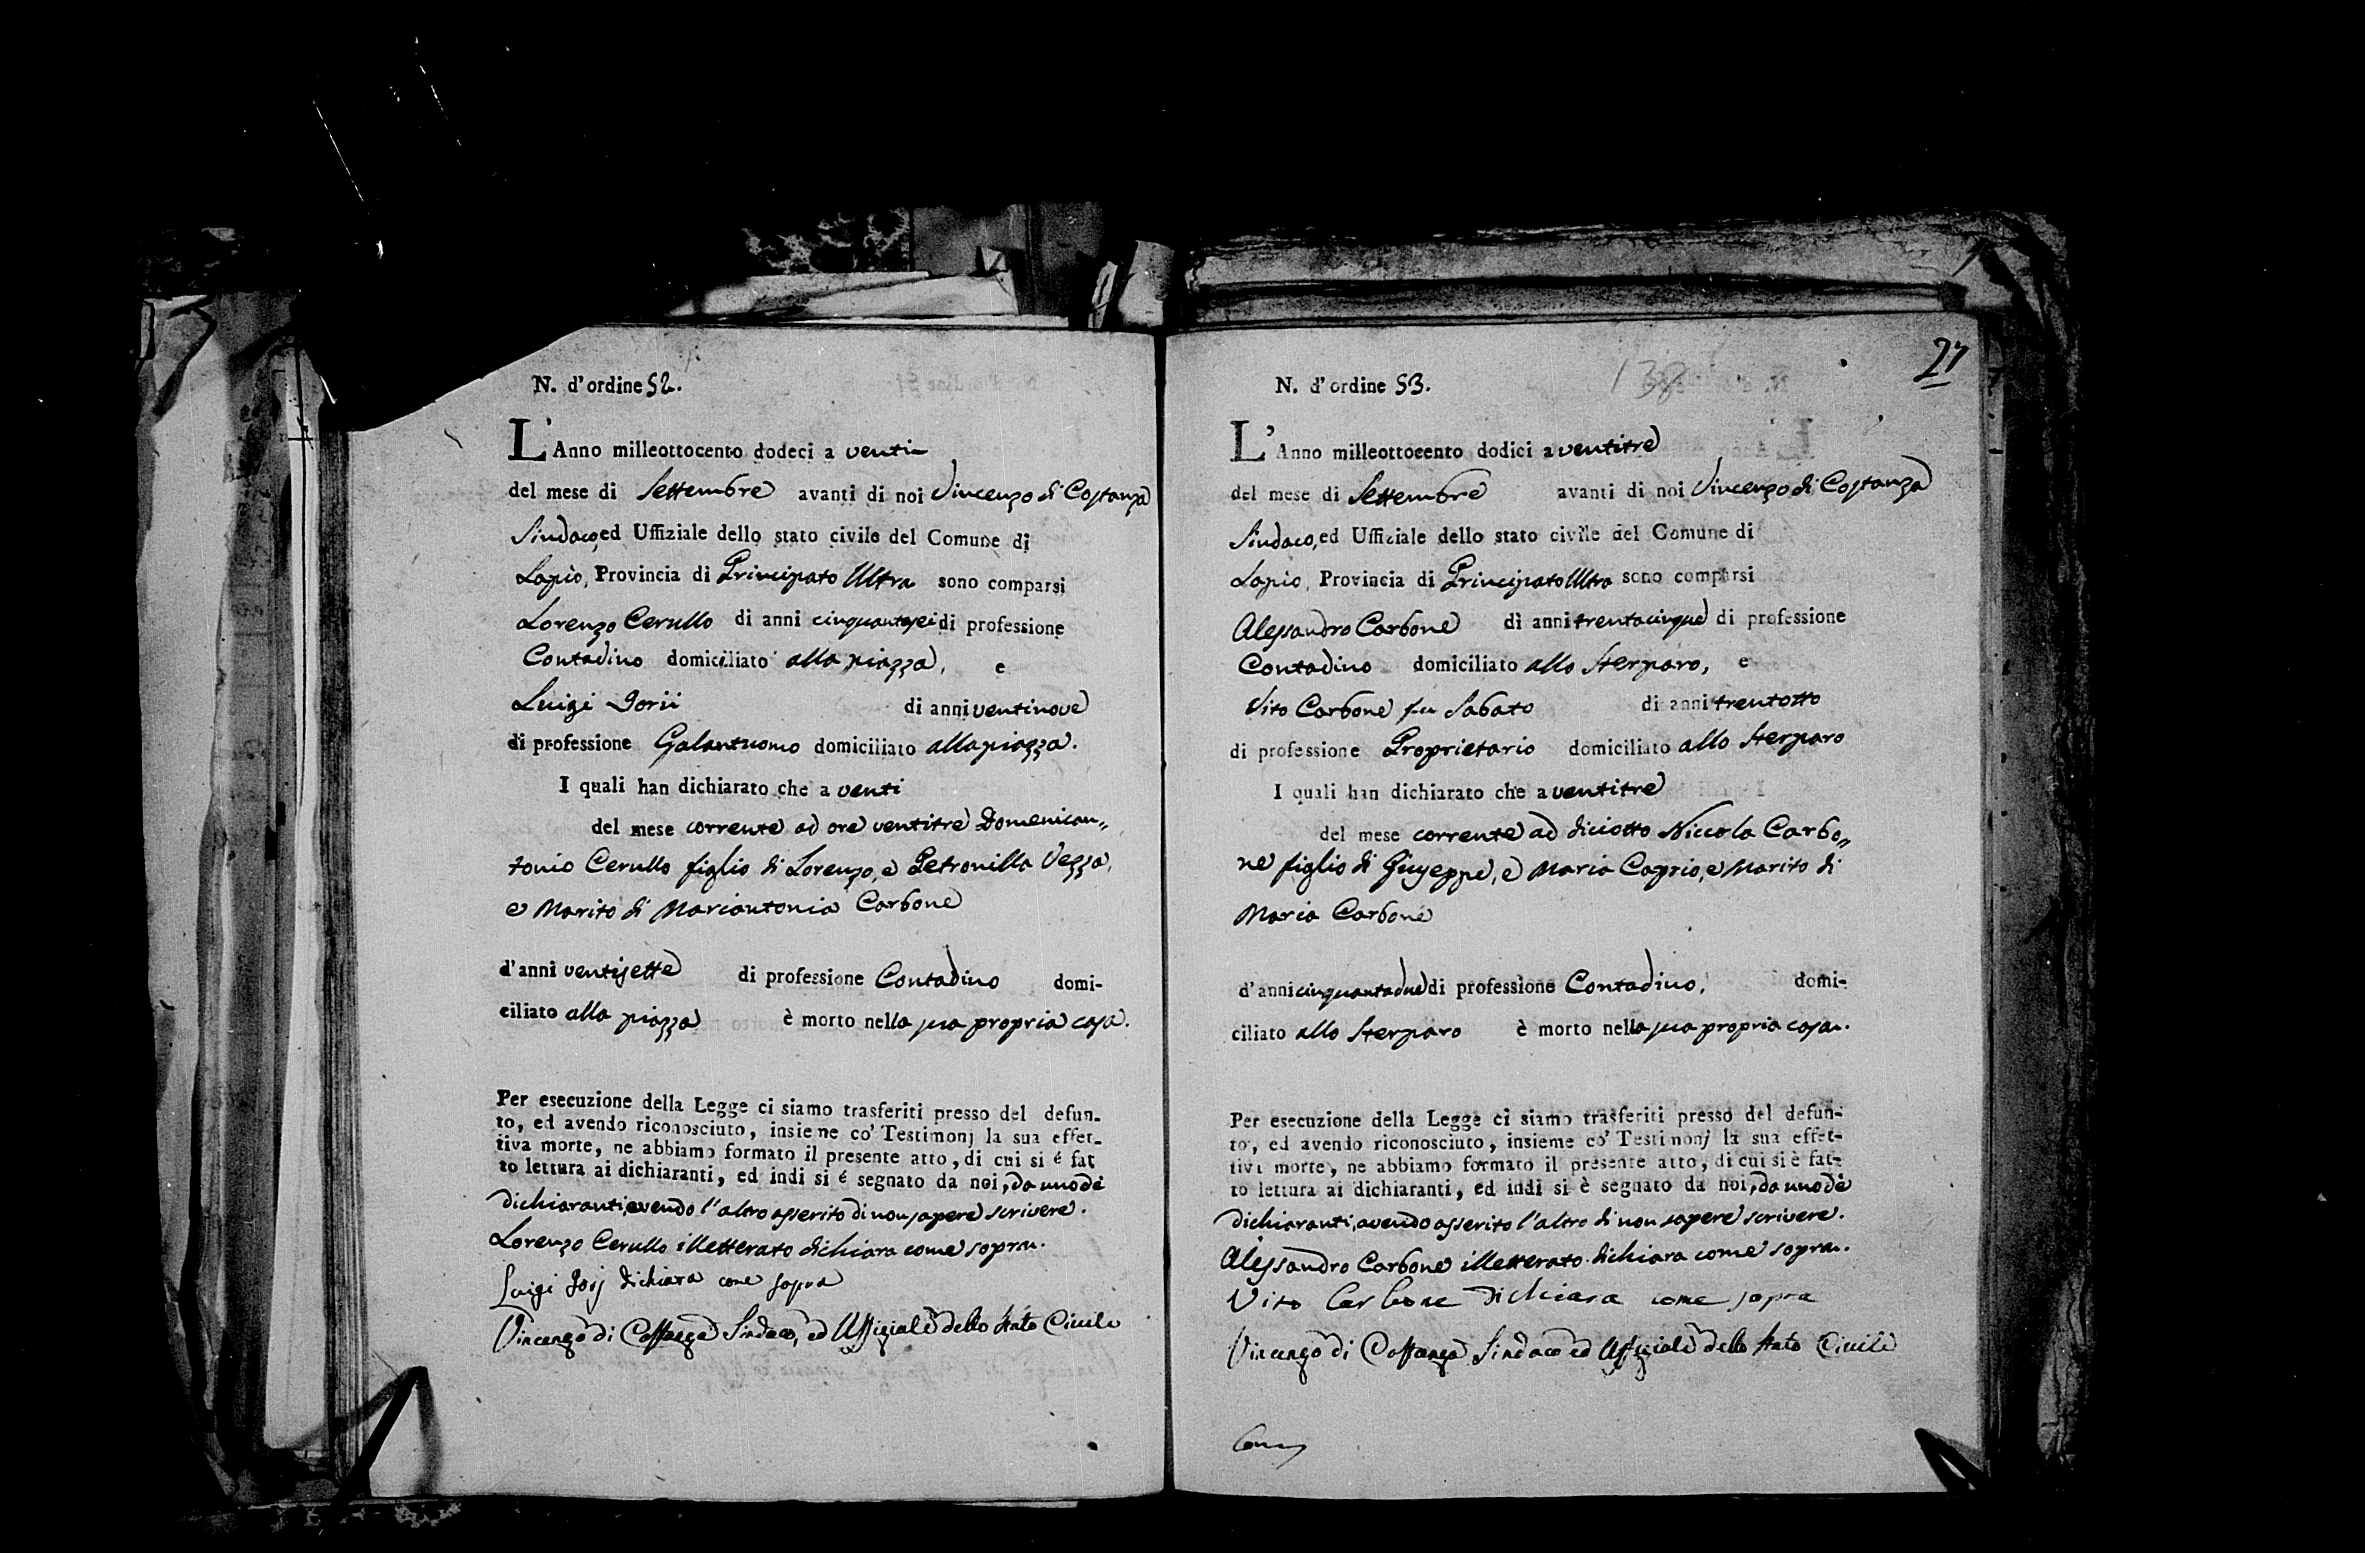 N. d'ordine 52.
L'Anno milleottocento dodeci a venti
del mese di Settembre avanti di noi Vincenzo di Costanza
Sindaco, ed Uffiziale dello stato civile del Comune di
Lapio, Provincia di Principato Ultra sono comparsi
Lorenzo Cerullo di anni cinquantasei di professione
Contadino domiciliato alla piazza, e
Luigi Jorii di anni ventinove
di professione Galantuomo domiciliato alla piazza.
I quali han dichiarato che a venti
del mese corrente ad ore ventitre Domenican„
tonio Cerullo figlio di Lorenzo, e Petronilla Vezza,
e Marito di Mariantonia Carbone
d'anni ventisette di professione Contadino domi-
ciliato alla piazza è morto nella sua propria casa.
Per esecuzione della Legge ci siamo trasferiti presso del defun-
to, ed avendo riconosciuto, insieme co' Testimonj la sua effet-
tiva morte, ne abbiamo formato il presente atto, di cui si é fat
to lettura ai dichiaranti, ed indi si é segnato da noi, da uno de
dichiaranti, avendo l'altro asserito di non sapere scrivere.
Lorenzo Cerullo illetterato dichiara come sopra.
Luigi Jorj dichiara come sopra
Vincenzo di Costanza Sindaco, ed Uffiziale dello Stato Civile
27
138
N. d'ordine 53.
L'Anno milleottocento dodici a ventitre
del mese di Settembre avanti di noi Vincenzo di Costanza
Sindaco, ed Ufficiale dello stato civile del Comune di
Lapio, Provincia di Principato Ultra sono comparsi
Alessandro Carbone di anni trentacinque di professione
Contadino domiciliato allo Sterparo, e
Vito Carbone fu Sabato di anni trentotto
di professione Proprietario domiciliato allo Sterparo
I quali han dichiarato che a ventitre
del mese corrente ad diciotto Niccola Carbo„
ne figlio di Giuseppe, e Maria Caprio, e Marito di
Maria Carbone
d'anni cinquantadue di professione Contadino, domi-
ciliato allo Sterparo è morto nella sua propria casa.
Per esecuzione della Legge ci siamo trasferiti presso del defun-
to, ed avendo riconosciuto, insieme co' Testimonj la sua effet-
tiva morte, ne abbiamo formato il presente atto, di cui si è fat-
to lettura ai dichiaranti, ed indi si è segnato da noi, da uno de
dichiaranti, avendo asserito l'altro di non sapere scrivere.
Alessandro Carbone illetterato dichiara come sopra.
Vito Carbone dichiara come sopra
Vincenzo di Costanza Sindaco ed Uffiziale dello Stato Civile